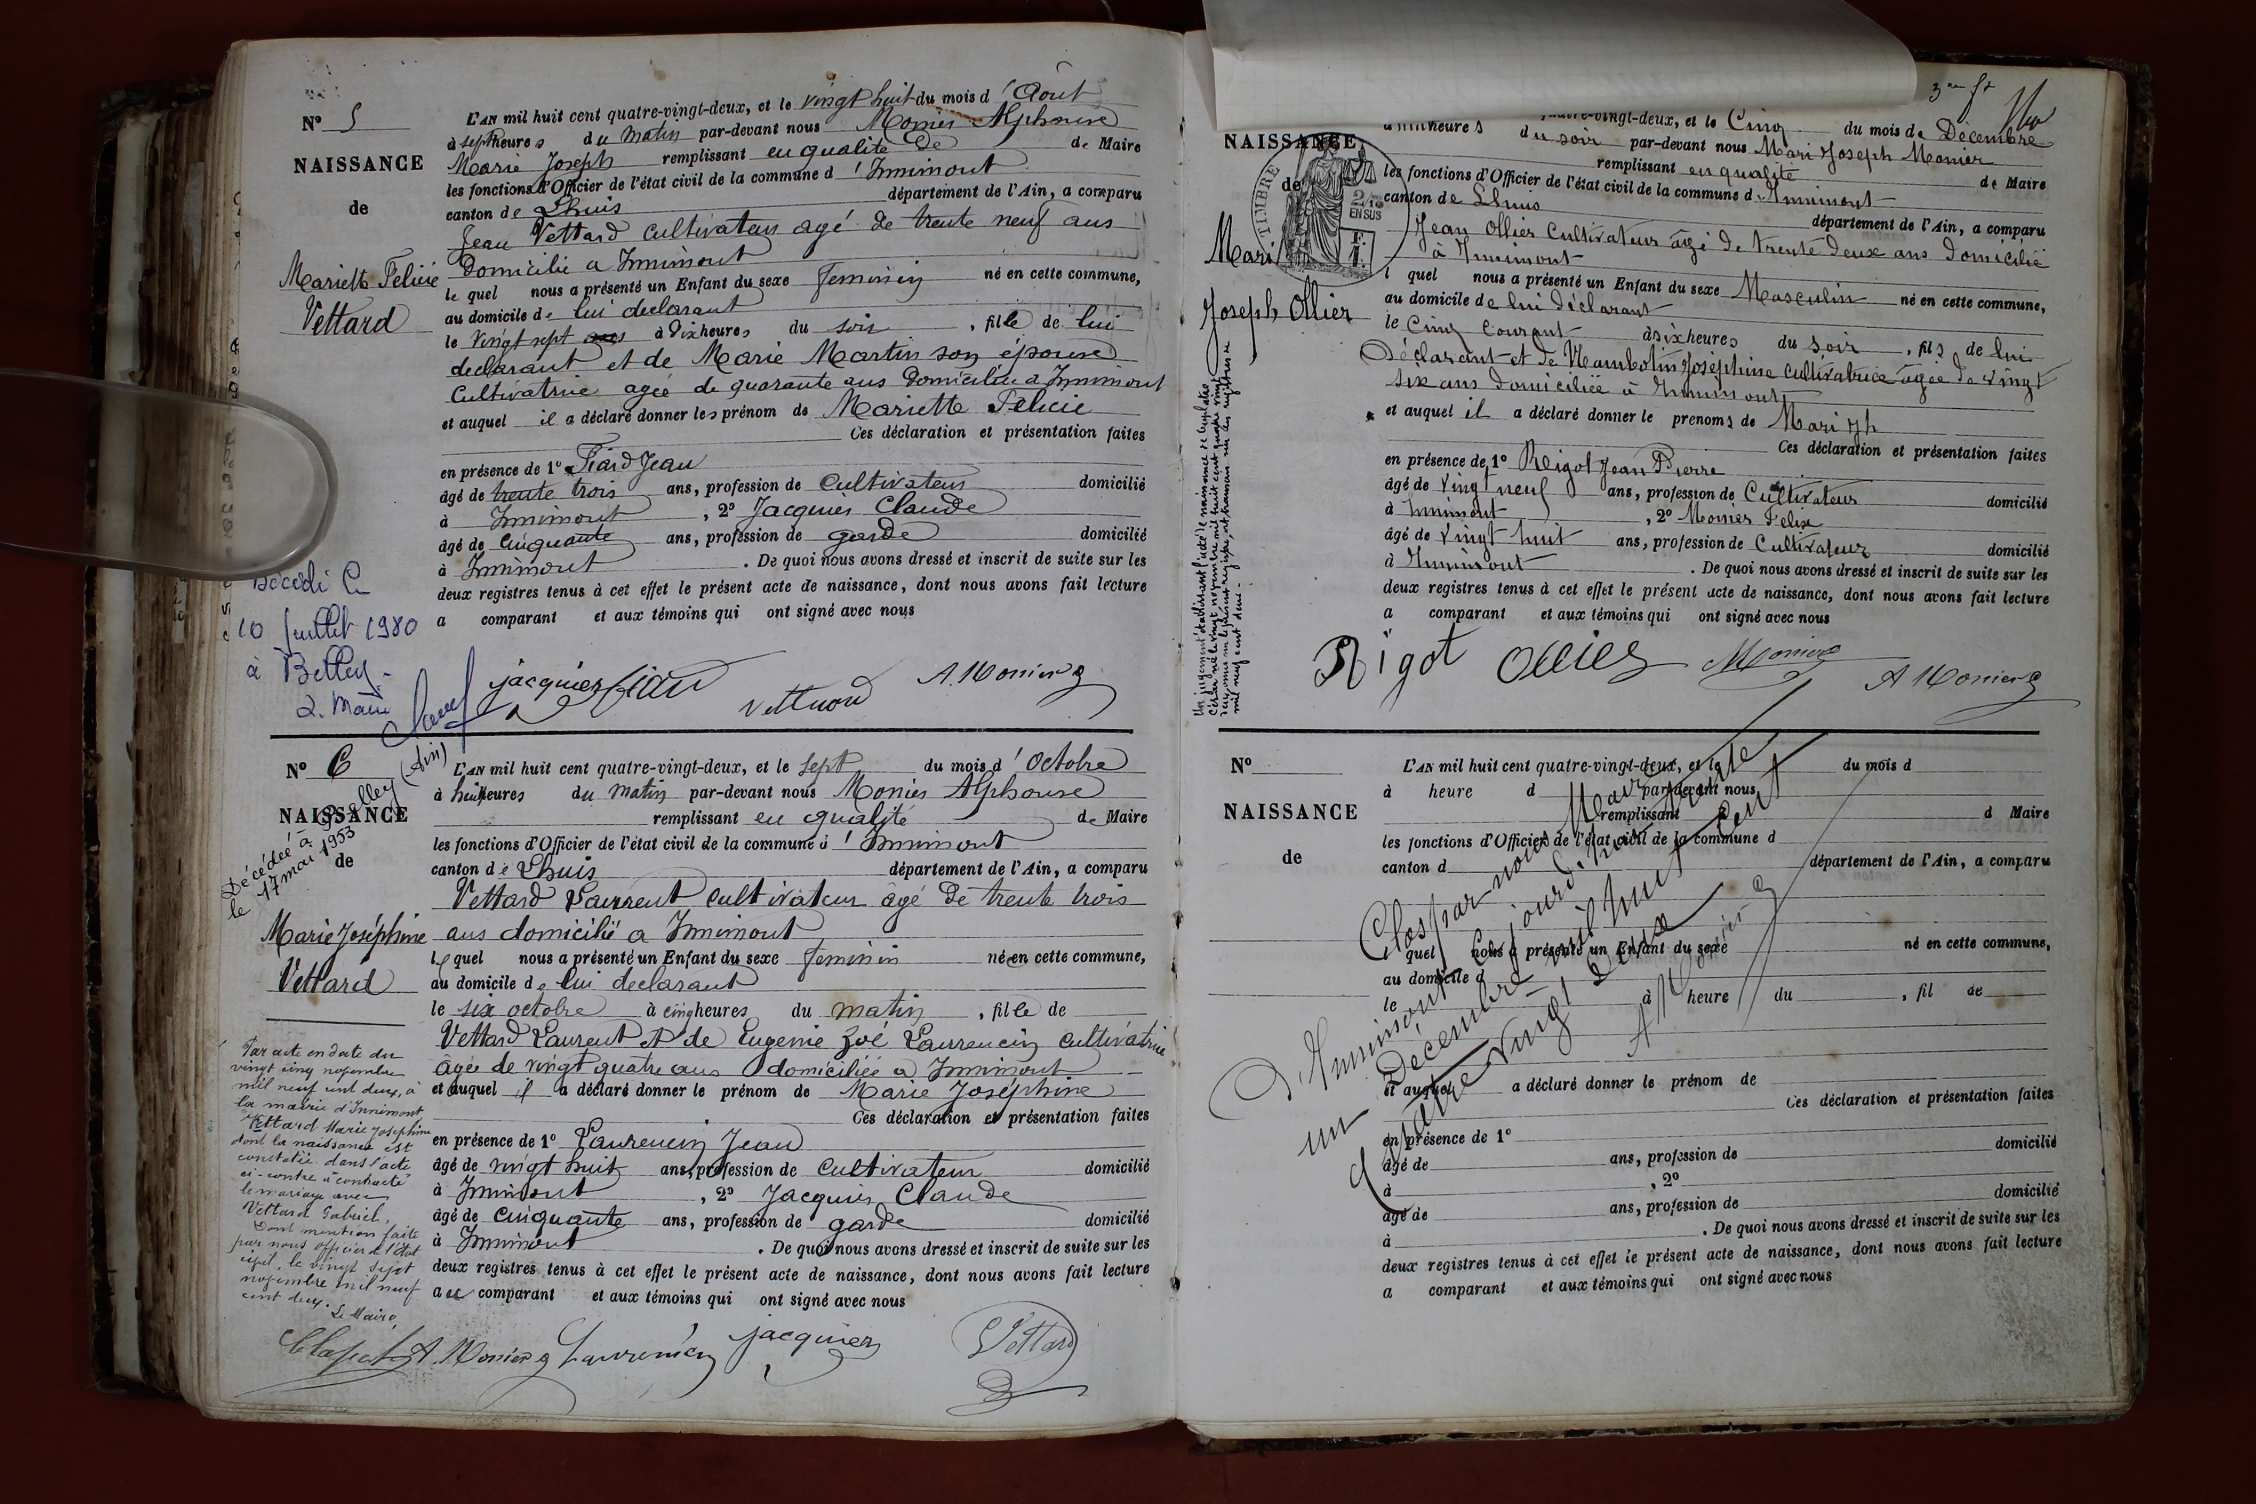 N° 5
NAISSANCE
de
Mariette Felicie
Vettard
L'AN mil huit cent quatre-vingt-deux, et le vingt huit du mois d'Août
à sept heures du matin par-devant nous Monier Alphonse
Marie Joseph remplissant en qualité de de Maire
les fonctions d'Officier de l'état civil de la commune d'Innimont
canton de Lhuis département de l'Ain, a comparu
Jean Vettard cultivateur agé de trente neuf ans
Domicilié a Innimont
le quel nous a présenté un Enfant du sexe feminin né en cette commune,
au domicile de lui declarant
le vingt sept à dix heures du soir, fille de lui
declarant et de Marie Martin son épouse
Cultivatrice agée de quarante ans Domiciliée a Innimont
et auquel il a déclaré donner les prénom de Mariette Felicie
Ces déclaration et présentation faites
en présence de 1° Fiard Jean
âgé de trente trois ans, profession de Cultivateur domicilié
à Innimont, 2° Jacquier Claude
âgé de Cinquante ans, profession de garde domicilié
à Innimont. De quoi nous avons dressé et inscrit de suite sur les
deux registres tenus à cet effet le présent acte de naissance, dont nous avons fait lecture
a comparant et aux témoins qui ont signé avec nous
Décédé le
10 Juillet 1980
à Belley
jacquier Fiard Vettard A. Monier
N° 6
NAISSANCE
de
Décédée à Belley (Ain)
le 17 mai 1953
Marie Joséphine
Vettard
L'AN mil huit cent quatre-vingt-deux, et le sept du mois d'Octobre
à huit heures du matin par-devant nous Monier Alphonse
remplissant en qualité de Maire
les fonctions d'Officier de l'état civil de la commune d'Innimont
canton de Lhuis département de l'Ain, a comparu
Vettard Laurent cultivateur âgé de trente trois
ans domicilié a Innimont
le quel nous a présenté un Enfant du sexe feminin née en cette commune,
au domicile de lui declarant
le six octobre à cinq heures du matin, fille de
Vettard Laurent et de Eugenie Zoé Laurencin cultivatrice
agée de vingt quatre ans domiciliée a Innimont
et auquel il a déclaré donner le prénom de Marie Joséphine
Ces déclaration et présentation faites
en présence de 1° Laurencin Jean
âgé de vingt huit ans, profession de cultivateur domicilié
à Innimont, 2° Jacquier Claude
âgé de Cinquante ans, profession de garde domicilié
à Innimont. De quoi nous avons dressé et inscrit de suite sur les
deux registres tenus à cet effet le présent acte de naissance, dont nous avons fait lecture
au comparant et aux témoins qui ont signé avec nous
Par acte en date du
vingt cinq novembre
mil neuf cent deux, à
la mairie d'Innimont
Vettard Marie Joséphine
dont la naissance est
constatée dans l'acte
ci-contre a contracté
le mariage avec
Vettard Gabriel.
Dont mention faite
par nous officier de l'état
civil, le vingt sept
novembre mil neuf
cent deux.
Le Maire,
A. Monier Laurencin jacquier Vettard
NAISSANCE
de
TIMBRE
2/10
EN SUS
Mari
Joseph Ollier
quatre-vingt-deux, et le Cinq du mois de Décembre
heures du soir par-devant nous Mari Joseph Monier
remplissant en qualité de Maire
les fonctions d'Officier de l'état civil de la commune d'Innimont
canton de Lhuis département de l'Ain, a comparu
Jean Ollier Cultivateur âgé de trente deux ans domicilié
à Innimont
l quel nous a présenté un Enfant du sexe Masculin né en cette commune,
au domicile de lui déclarant
le Cinq courant à six heures du soir, fils de lui
Déclarant et de Joséphine cultivatrice âgée de vingt
six ans domiciliée à Innimont
et auquel il a déclaré donner le prenoms de Mari Jh
Ces déclaration et présentation faites
en présence de 1° Rigot Jean Pierre
âgé de vingt neuf ans, profession de Cultivateur domicilié
à Innimont, 2° Monier Felix
âgé de vingt huit ans, profession de Cultivateur domicilié
à Innimont. De quoi nous avons dressé et inscrit de suite sur les
deux registres tenus à cet effet le présent acte de naissance, dont nous avons fait lecture
a comparant et aux témoins qui ont signé avec nous
Rigot Ollier Monier A Monier
N°
NAISSANCE
de
L'AN mil huit cent quatre-vingt-deux, et le du mois d
à heure d par-devant nous
remplissant d Maire
les fonctions d'Officier de l'état civil de la commune d
canton d département de l'Ain, a comparu
quel nous a présenté un Enfant du sexe né en cette commune,
au domicile d
le à heure du, fil de
et auquel a déclaré donner le prénom de
Ces déclaration et présentation faites
en présence de 1° domicilié
âgé de ans, profession de
à, 2° domicilié
âgé de ans, profession de
à. De quoi nous avons dressé et inscrit de suite sur les
deux registres tenus à cet effet le présent acte de naissance, dont nous avons fait lecture
a comparant et aux témoins qui ont signé avec nous
Clos par nous Maire
D'Innimont ce jourd'hui trente
un Décembre mil huit cent
quatre vingt deux
A Monier